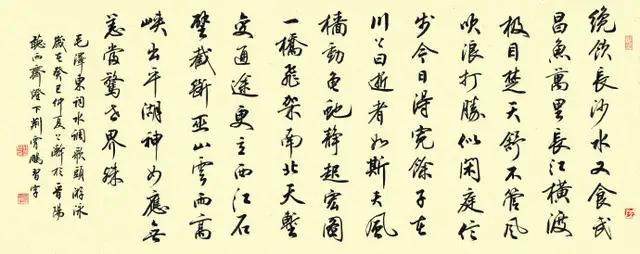 纔飲長沙水又食武
昌魚萬里長江橫渡
極目楚天舒不管風
吹浪打勝似閑庭信
步今日得寬餘子在
川上曰逝者如斯夫風
檣動龜蛇靜起宏圖
一橋飛架南北天塹
變通途更立西江石
壁截斷巫山雲雨高
峽出平湖神女應無
恙當驚世界殊
毛澤東詞水調歌頭游泳
歲在癸巳仲夏之於晉陽
聽雨齋燈下荊霄鵬習字